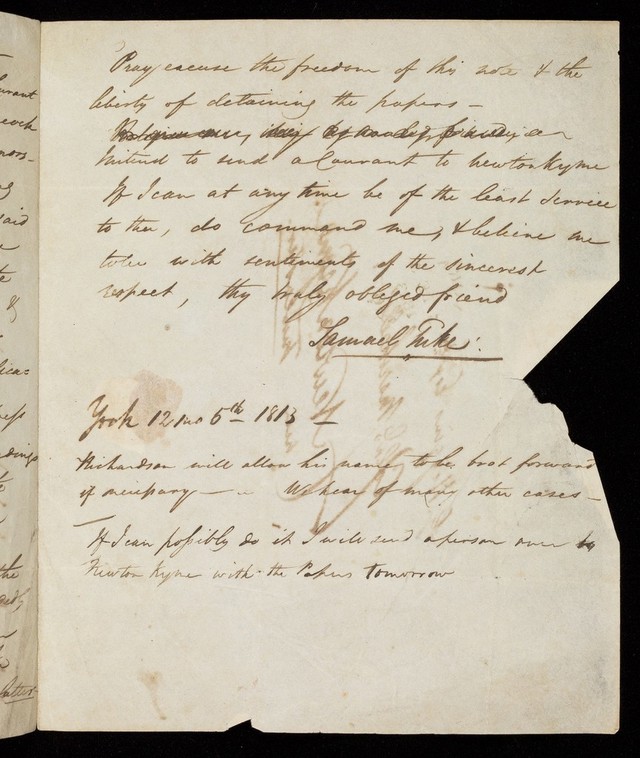 Pray excuse the freedom of this note & the
liberty of detaining the papers —
Intend to send a Courant to Newton Kyme
If I can at any time be of the least service
to thee, do command me, & believe me
to be with sentiments of the sincerest
respect, thy truly obliged friend
Samuel Tuke.
York 12 mo 5th 1813 —
Richardson will allow his name to be brot forward
if necessary — We hear of many other cases —
If I can possibly do it I will send a person over to
Newton Kyme with the Papers tomorrow